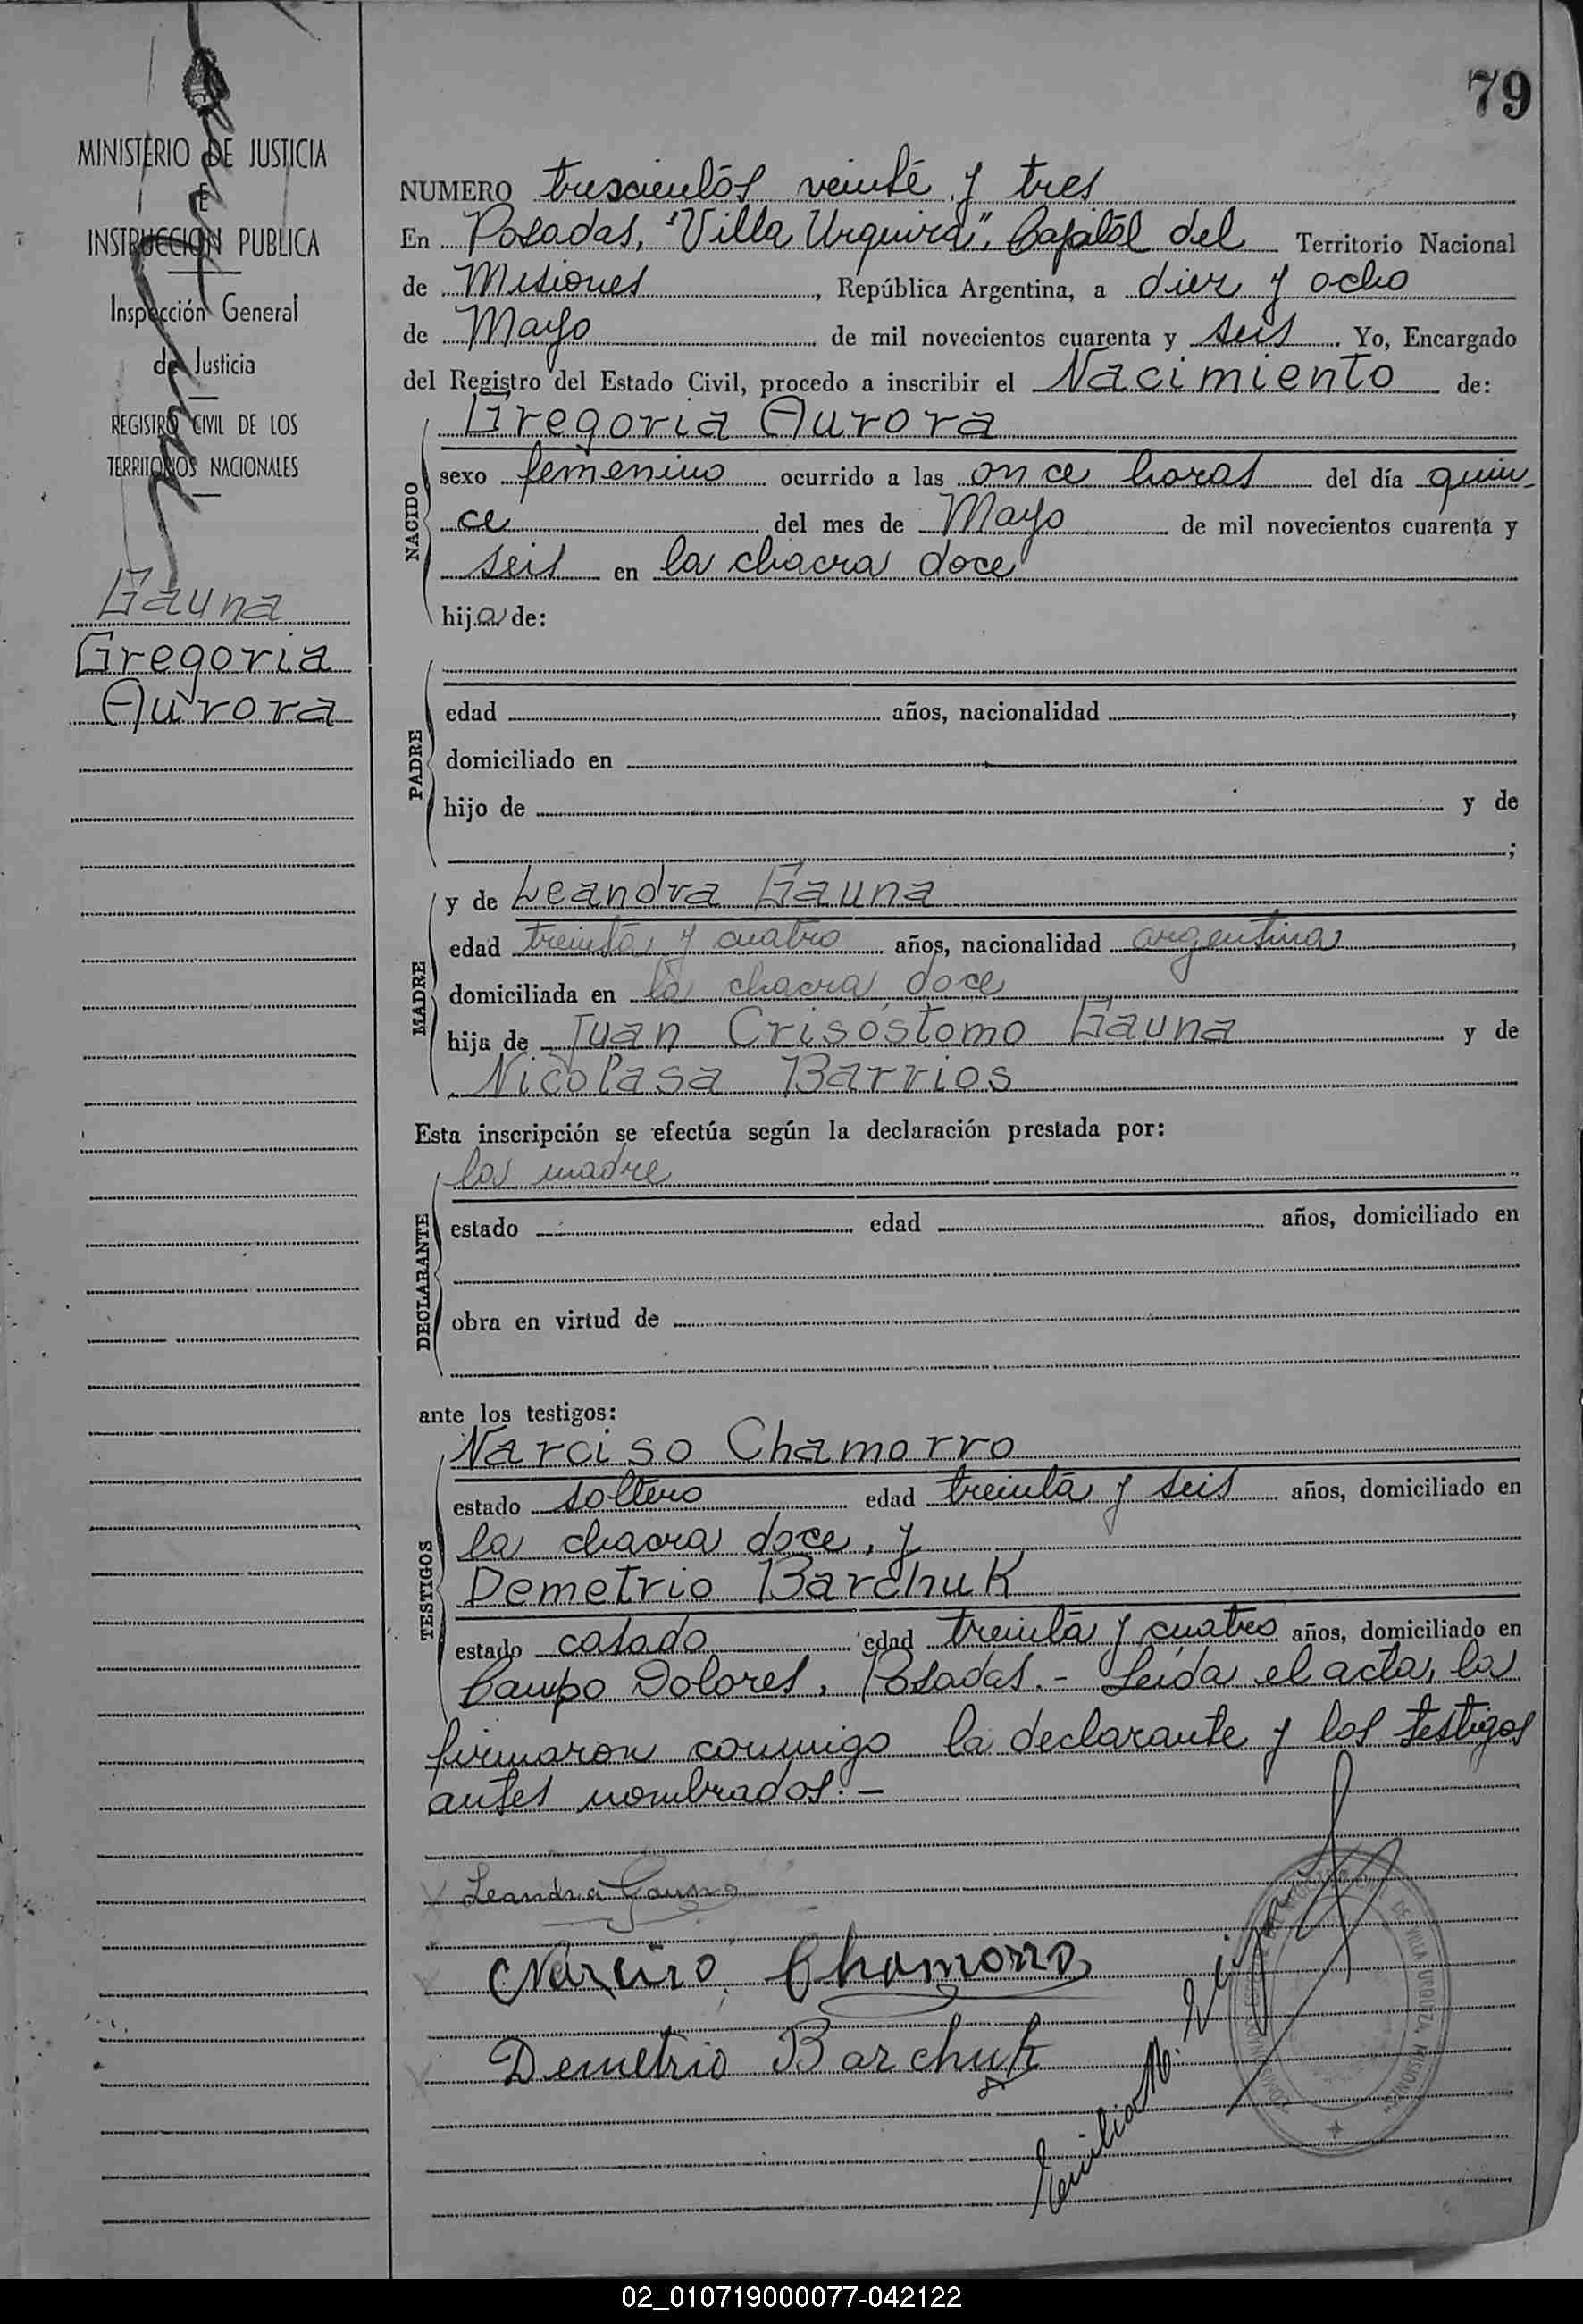 79
MINISTERIO DE JUSTICIA
E
INSTRUCCION PUBLICA
Inspección General
de Justicia
REGISTRO CIVIL DE LOS
TERRITORIOS NACIONALES
Gauna
Gregoria
Aurora
NUMERO trescientos veinte y tres
En Posadas, "Villa Urquiza", Capital del Territorio Nacional
de Misiones, República Argentina, a diez y ocho
de Mayo de mil novecientos cuarenta y seis. Yo, Encargado
del Registro del Estado Civil, procedo a inscribir el Nacimiento de:
NACIDO
Gregoria Aurora
sexo femenino ocurrido a las once horas del día quin-
ce del mes de Mayo de mil novecientos cuarenta y
seis en la chacra doce
hija de:
PADRE
edad años, nacionalidad ,
domiciliado en
hijo de y de
;
MADRE
y de Leandra Gauna
edad treinta y cuatro años, nacionalidad argentina,
domiciliada en la chacra doce
hija de Juan Crisóstomo Gauna y de
Nicolasa Barrios
Esta inscripción se efectúa según la declaración prestada por:
DECLARANTE
la madre
estado edad años, domiciliado en
obra en virtud de
ante los testigos:
TESTIGOS
Narciso Chamorro
estado soltero edad treinta y seis años, domiciliado en
la chacra doce, y
Demetrio Barchuk
estado casado edad treinta y cuatro años, domiciliado en
Campo Dolores, Posadas.- Leída el acta, la
firmaron conmigo la declarante y los testigos
antes nombrados.-
Leandra Gauna
Narciso Chamorro
Demetrio Barchuk
Emilio
DE VILLA URQUIZA, MISIONES
02_010719000077-042122